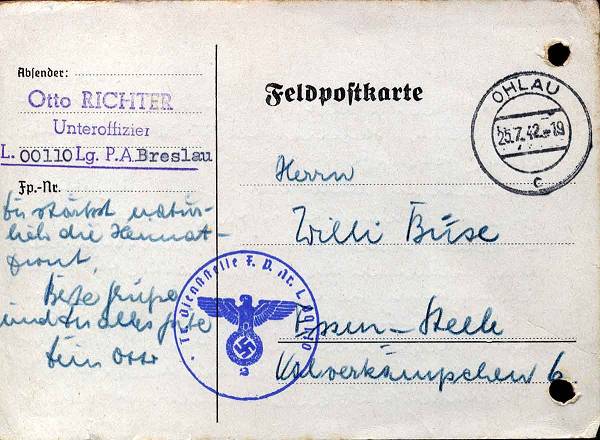 Absender:
Otto RICHTER
Unteroffizier
L. 00110 Lg. P.A. Breslau
Fp.-Nr.
Du stärkst natür-
lich die Heimat-
front.
Beste Grüße
und Dir alles gute
Dein Otto
Feldpostkarte
OHLAU
25.7.42.-19
c
Herrn
Willi Buse
Essen-Steele
Kalverkämpchen 6
Dienststelle F. P. Nr. L 00110
2